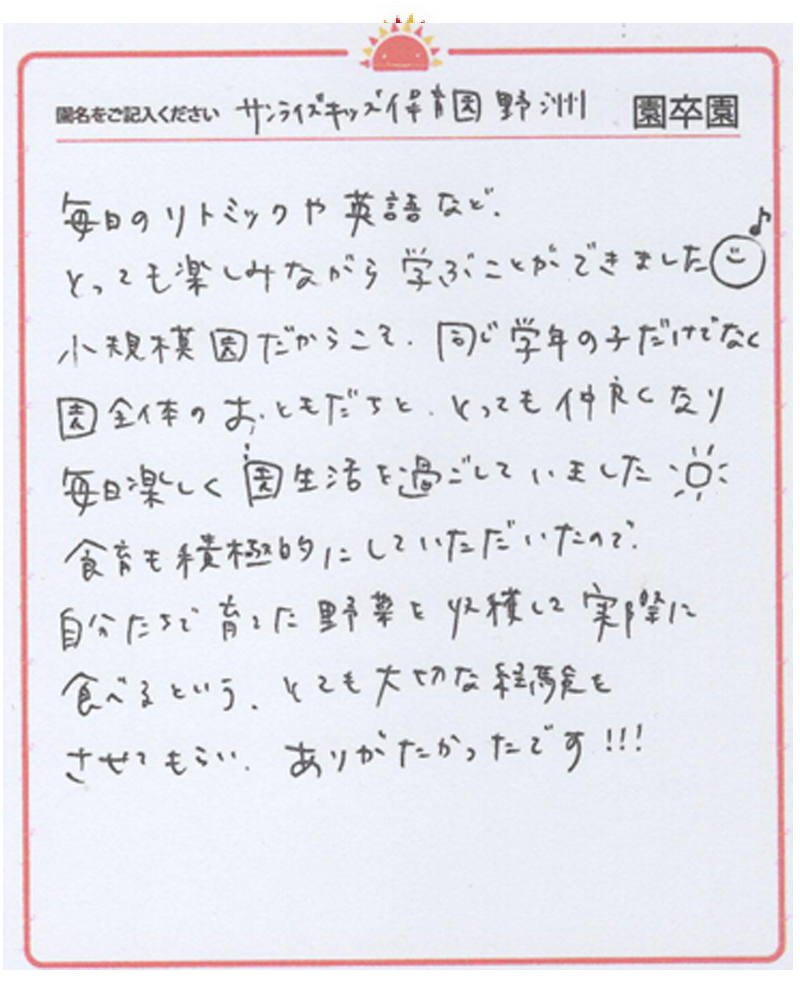 園名をご記入ください サンライズキッズ保育園 野洲 園卒園
毎日のリトミックや英語など、
とっても楽しみながら学ぶことができました
小規模園だからこそ、同じ学年の子だけでなく
園全体のおともだちと、とっても仲良くなり
毎日楽しく園生活を過ごしていました
食育も積極的にしていただいたので、
自分たちで育てた野菜を収穫して実際に
食べるという、とても大切な経験を
させてもらい、ありがたかったです!!!